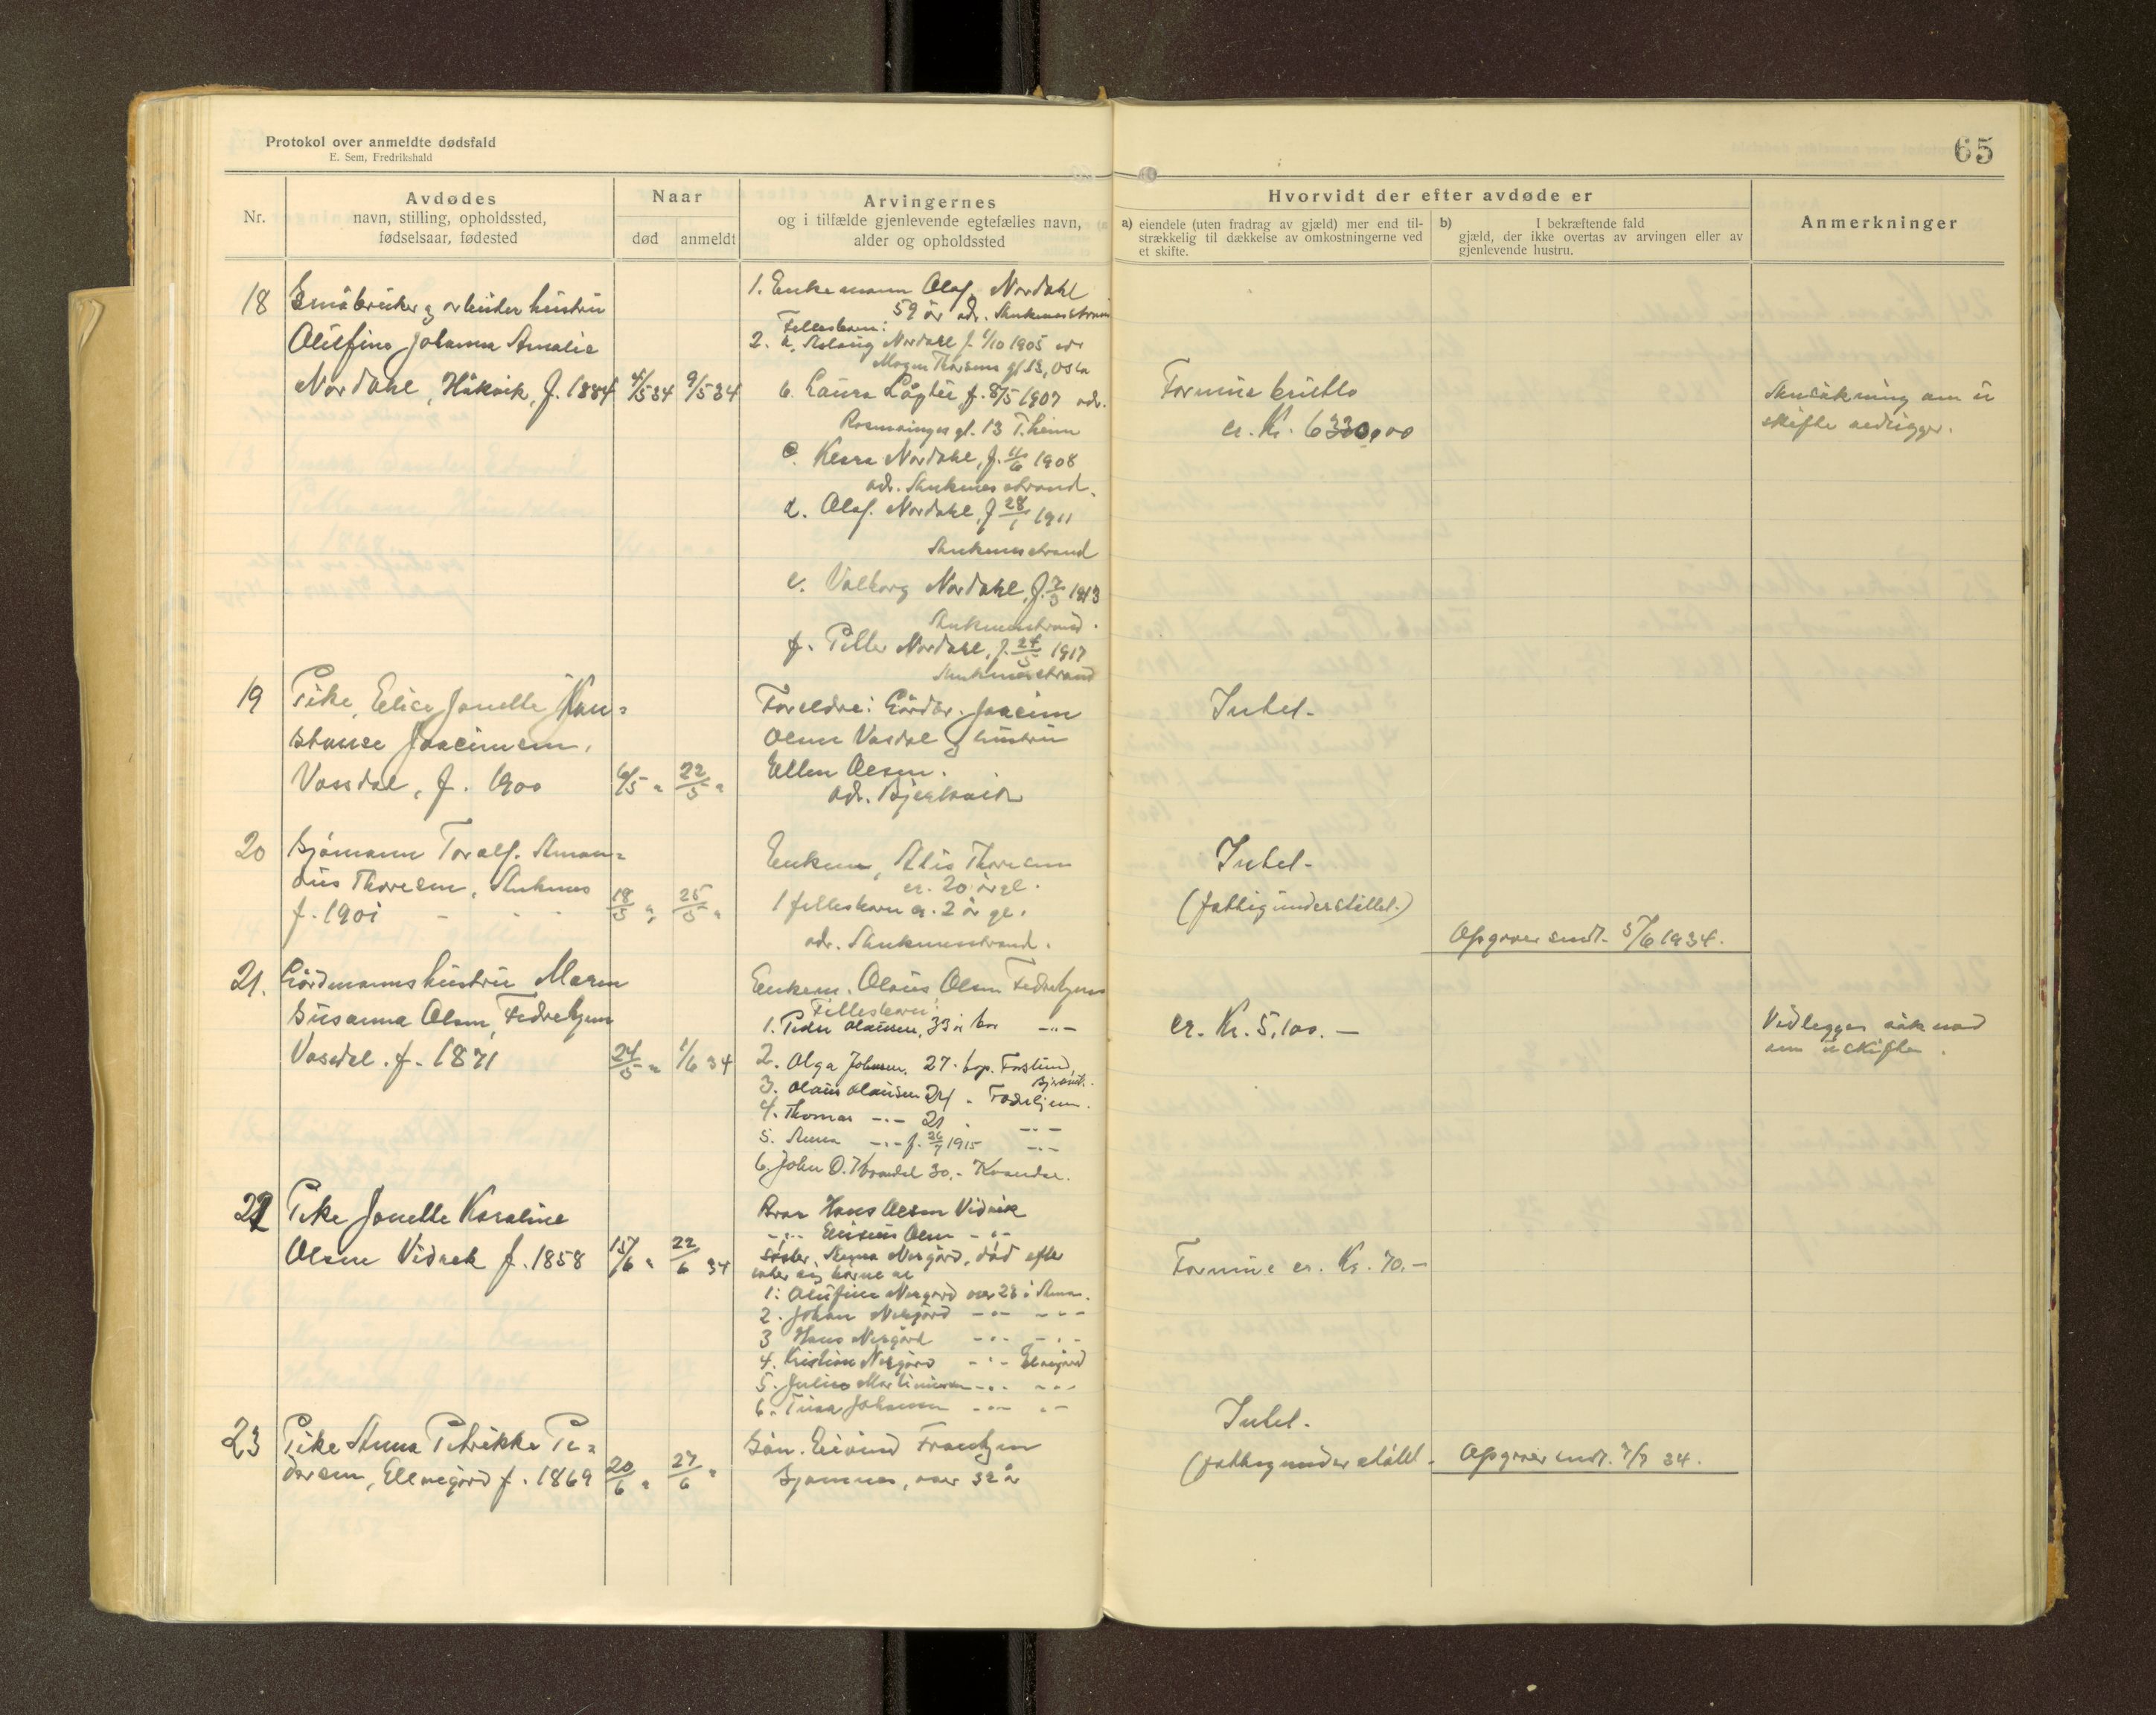 Protokol over anmeldte dødsfald
E. Sem, Fredrikshald
65
Nr.
Avdødes
navn, stilling, opholdssted,
fødselsaar, fødested
Naar
død
anmeldt
Arvingernes
og i tilfælde gjenlevende egtefælles navn,
alder og opholdssted
Hvorvidt der efter avdøde er
a) eiendele (uten fradrag av gjæld) mer end til-
strækkelig til dækkelse av omkostningerne ved
et skifte.
b) I bekræftende fald
gjæld, der ikke overtas av arvingen eller av
gjenlevende hustru.
Anmerkninger
18
Småbruker og arbeider hustru
Olufine Johanna Amalie
Nordahl, Håkvik, f. 1884
4/5 34
9/5 34
1. Enkemann Olaf Nordahl
59 år adr. Ankenesstrand
Fellesbarn:
2. a. Aslaug Nordahl f. 1/10 1905 adr
Mogen Thorsens gt 13, Oslo
b. Laura f. 8/5 1907 adr.
gt. 13 T.heim
c. Klara Nordahl, f. 11/6 1908
adr. Ankenesstrand.
d. Olaf Nordahl, f 28/1 1911
Ankenesstrand
e. Valborg Nordahl, f. 2/3 1913
Ankenesstrand.
f. Petter Nordahl, f. 24/5 1917
Ankenesstrand
Formue brutto
ca. Kr. 6330,00
Ansøkning om u
skifte vedligger.
19
Pike, Elice Jonette Kon=
stanse Joacimsen,
Vassdal, f. 1900
6/5 "
22/5 "
Foreldre: Gårdbr. Joacim
Olsen Vasdal og hustru
Ellen Olsen.
adr. Bjerkvik
Intet.
20
Sjømann Toralf Aman=
dus Thoresen, Ankenes
f. 1901
18/5 "
25/5 "
Enken, Alis Thoresen
ca. 20 år gl.
1 fellesbarn ca. 2 år gl.
adr. Ankenesstrand.
Intet.
(fattigunderstøttet.)
Opgaver sendt. 5/6 1934.
21.
Gårdmannshustru Maren
Susanna Olsen, Fedrehjem
Vasdal. f. 1871
24/5 "
1/6 34
Enkem. Olaus Olsen Fedrehjem
Fellesbarn:
1. Peder Olaussen, 33 år bor -"-
2. Olga Johnsen, 27. bop. Forslund,
3. Olaus Olaussen 24 " Fedrehjem.
4. Thomas -"- 21 " -"-
5. Anna -"- f. 26/7 1915 -"-
6. John O. Kvandal 30.- Kvandal.
ca. Kr. 5.100.-
Vedlegger søknad
om uskifte.
22
Pike Jonette Karoline
Olsen Vidrek f. 1858
15/6 "
22/6 34
Bror Hans Olsen Vidrek
-"- Olsen -"-
søster, Nergård, død efter
later sig barna
1. Olufine Nergård over 28 i
2. Johan Nergård -"- -"-
3 Hans Nergård -"- -"-
4. Kristian Nergård -"- Elvegård
5. Julie Martinussen -"- -"-
6. Johansen -"- -"-
Formue ca. Kr. 70.-
23
Pike Anna Petrikke Pe=
dersen, Elvegård f. 1869
20/6 "
27/6 "
Søn. Frantzen
Sjømann, over 32 år
Intet.
(fattigunderstøttet.
Opgaver sendt. 7/7 34.